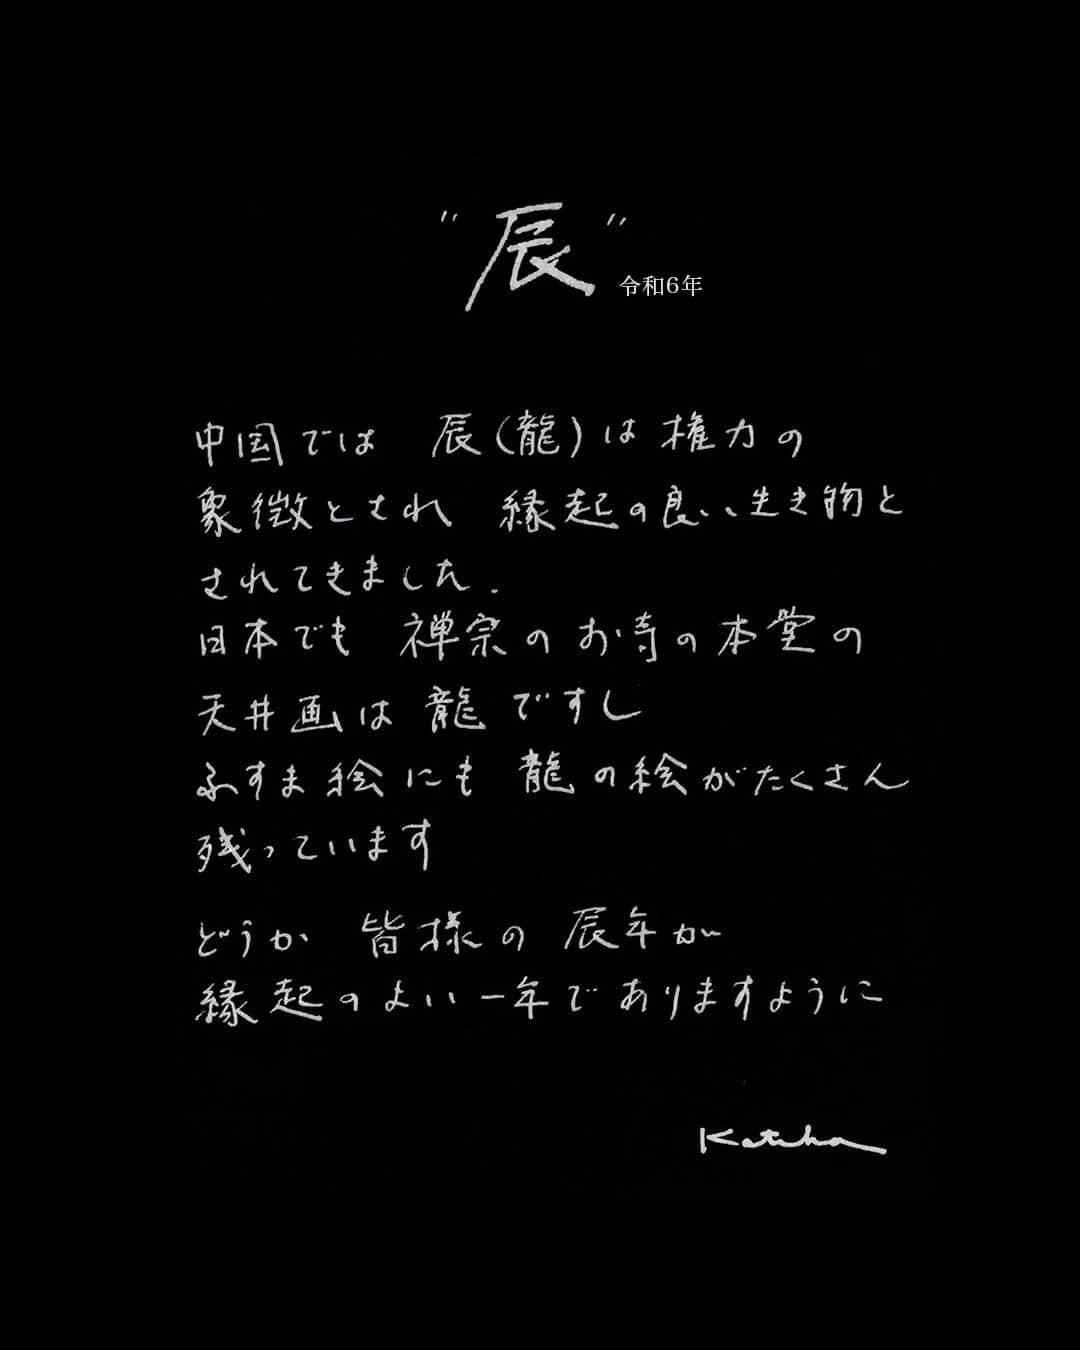 "辰"
令和6年
中国では 辰(龍)は権力の
象徴とされ 縁起の良い生き物と
されてきました.
日本でも 禅宗のお寺の本堂の
天井画は龍ですし
ふすま絵にも 龍の絵がたくさん
残っています
どうか 皆様の 辰年が
縁起のよい一年でありますように